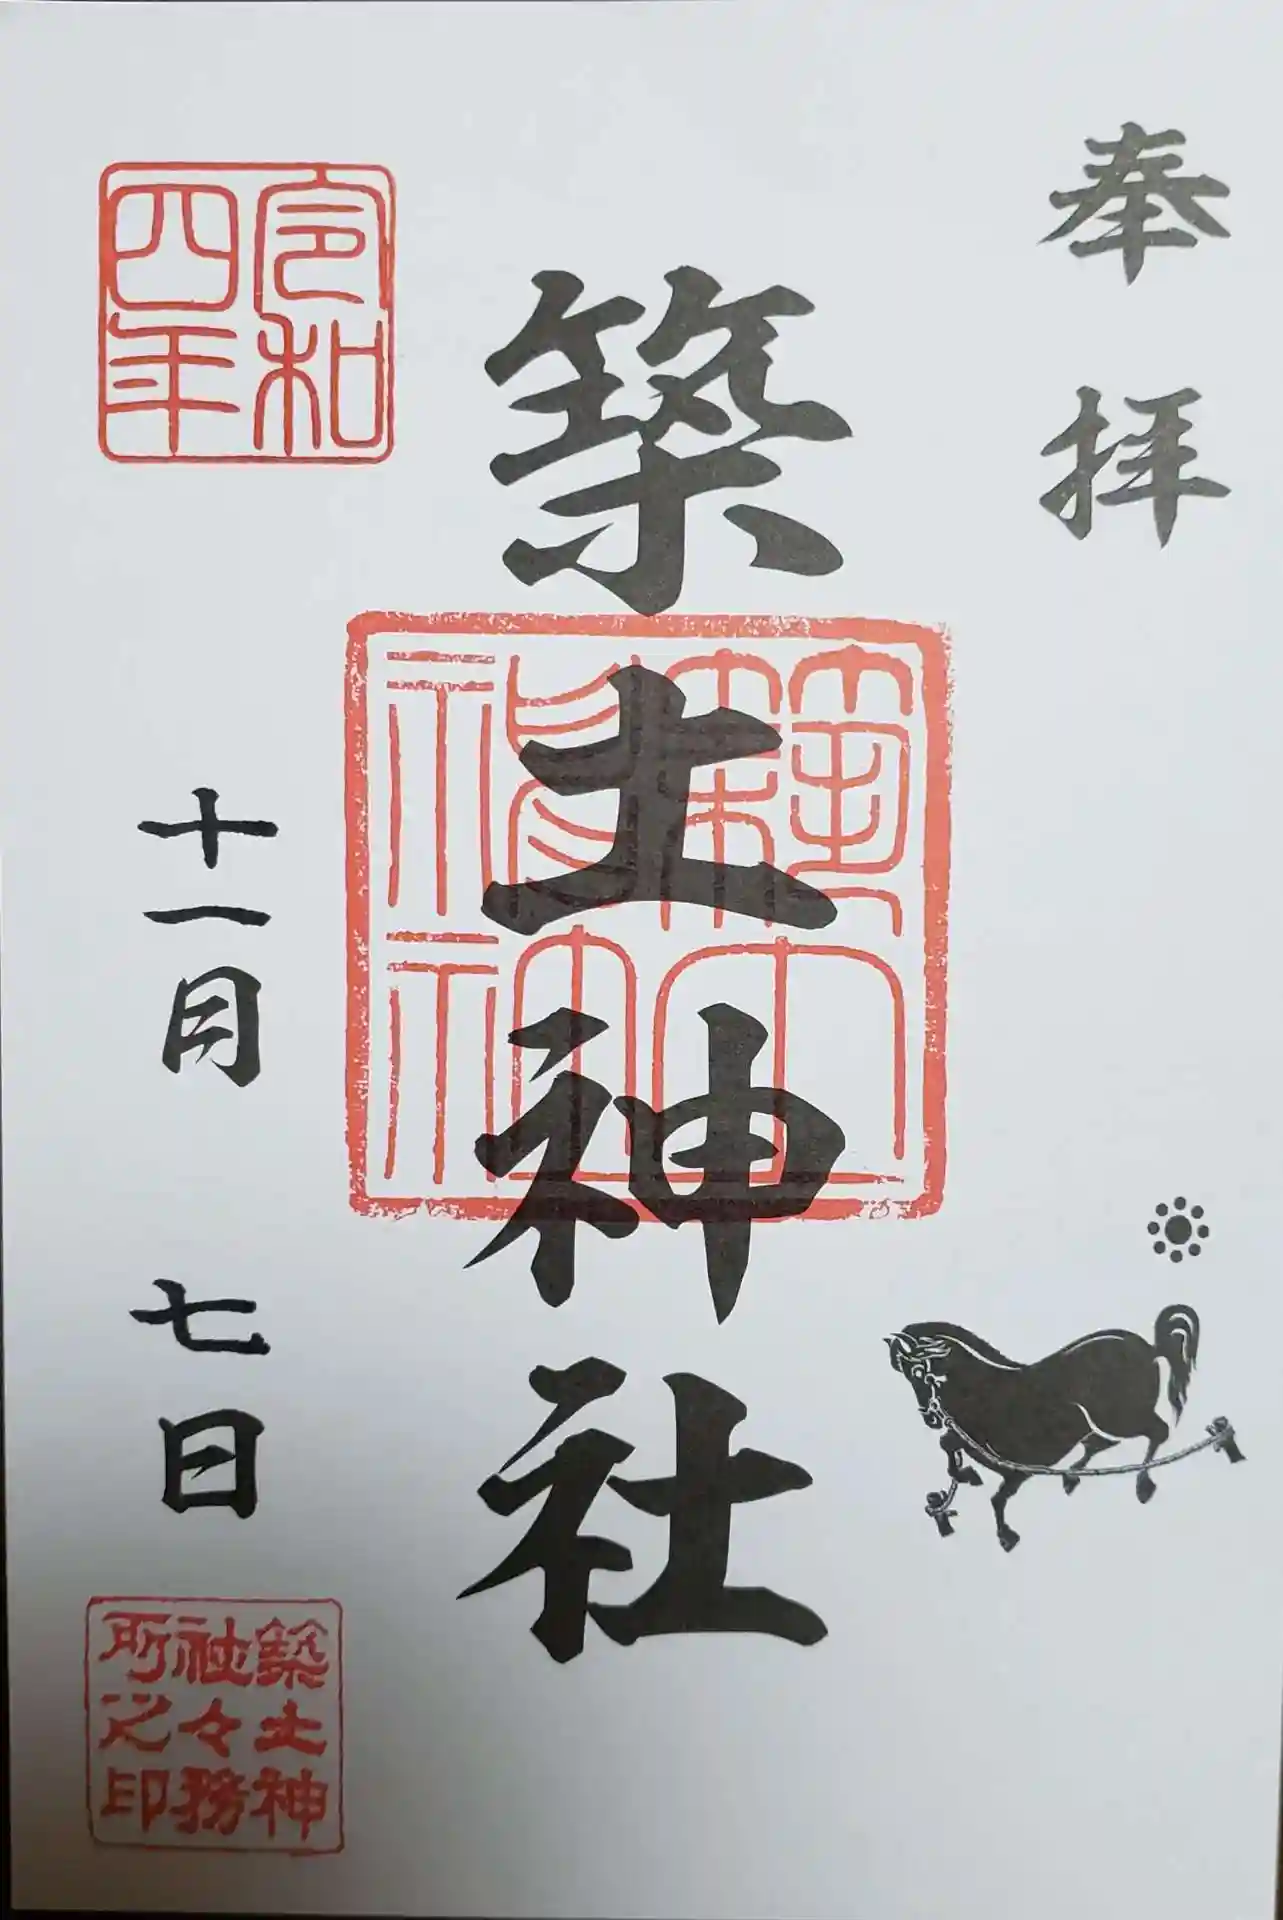 奉拝
築土神社
築土神社
令和
四年
十一月 七日
築土神
社々務
所之印